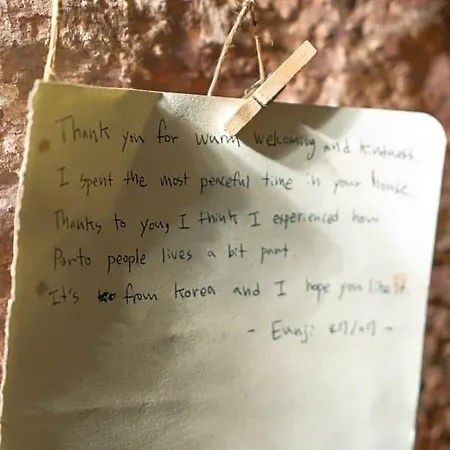 Thank you for warm welcoming and kindness.
I spent the most peaceful time in your house.
Thanks to you, I think I experienced how
Porto people lives a bit part.
It's from Korea and I hope you like it.
- Eunji